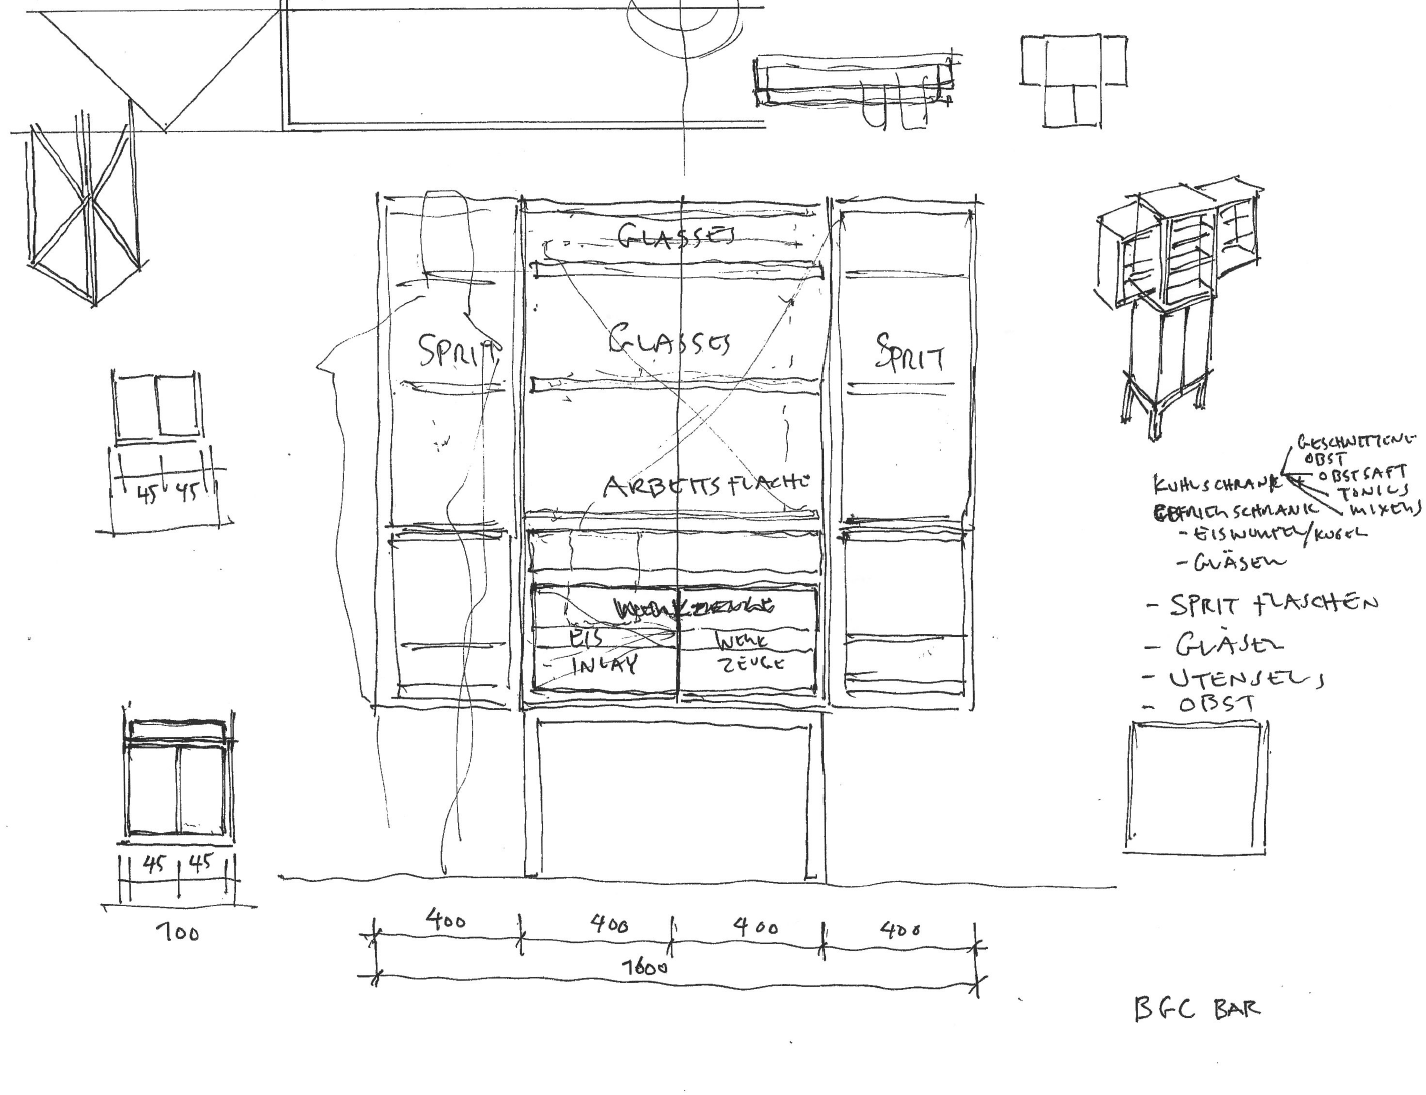 GLASSES
SPRIT
GLASSES
SPRIT
ARBEITSFLACHE
EIS
INLAY
WERK
ZEUGE
45 45
45 45
100
400 400 400 400
1600
GESCHNITTENE
OBST
KUHLSCHRANK + OBSTSAFT
TONICS
GEFRIERSCHRANK MIXERS
- EISWURFEL/KUGEL
- GLÄSER
- SPRIT FLASCHEN
- GLÄSER
- UTENSELS
- OBST
BGC BAR